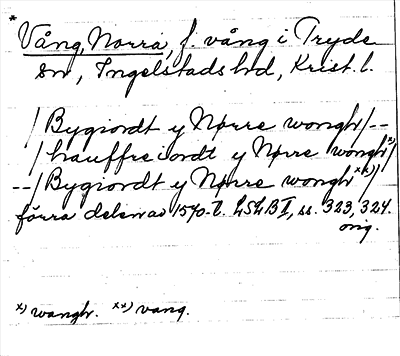 * Vång, Norra, f. vång i Tryde
sn, Ingelstads hd, Krist. l.
/Bygiordt y Nørre wongh/--
/hauffreiordt y Nørre wongh x)/
--/Bygiordt y Nørre wongh xx)/
förra delen av 1570-t. LSLB II, ss. 323, 324.
orig.
x) wangh. xx) vang.